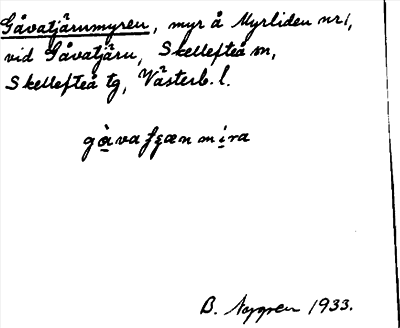 Gåvatjärnmyren, myr å Myrliden nr 1,
vid Gåvatjärn, Skellefteå m,
Skellefteå tg, Västerb. l.
gàvaʃǥænmíra
B. Nygren 1933.